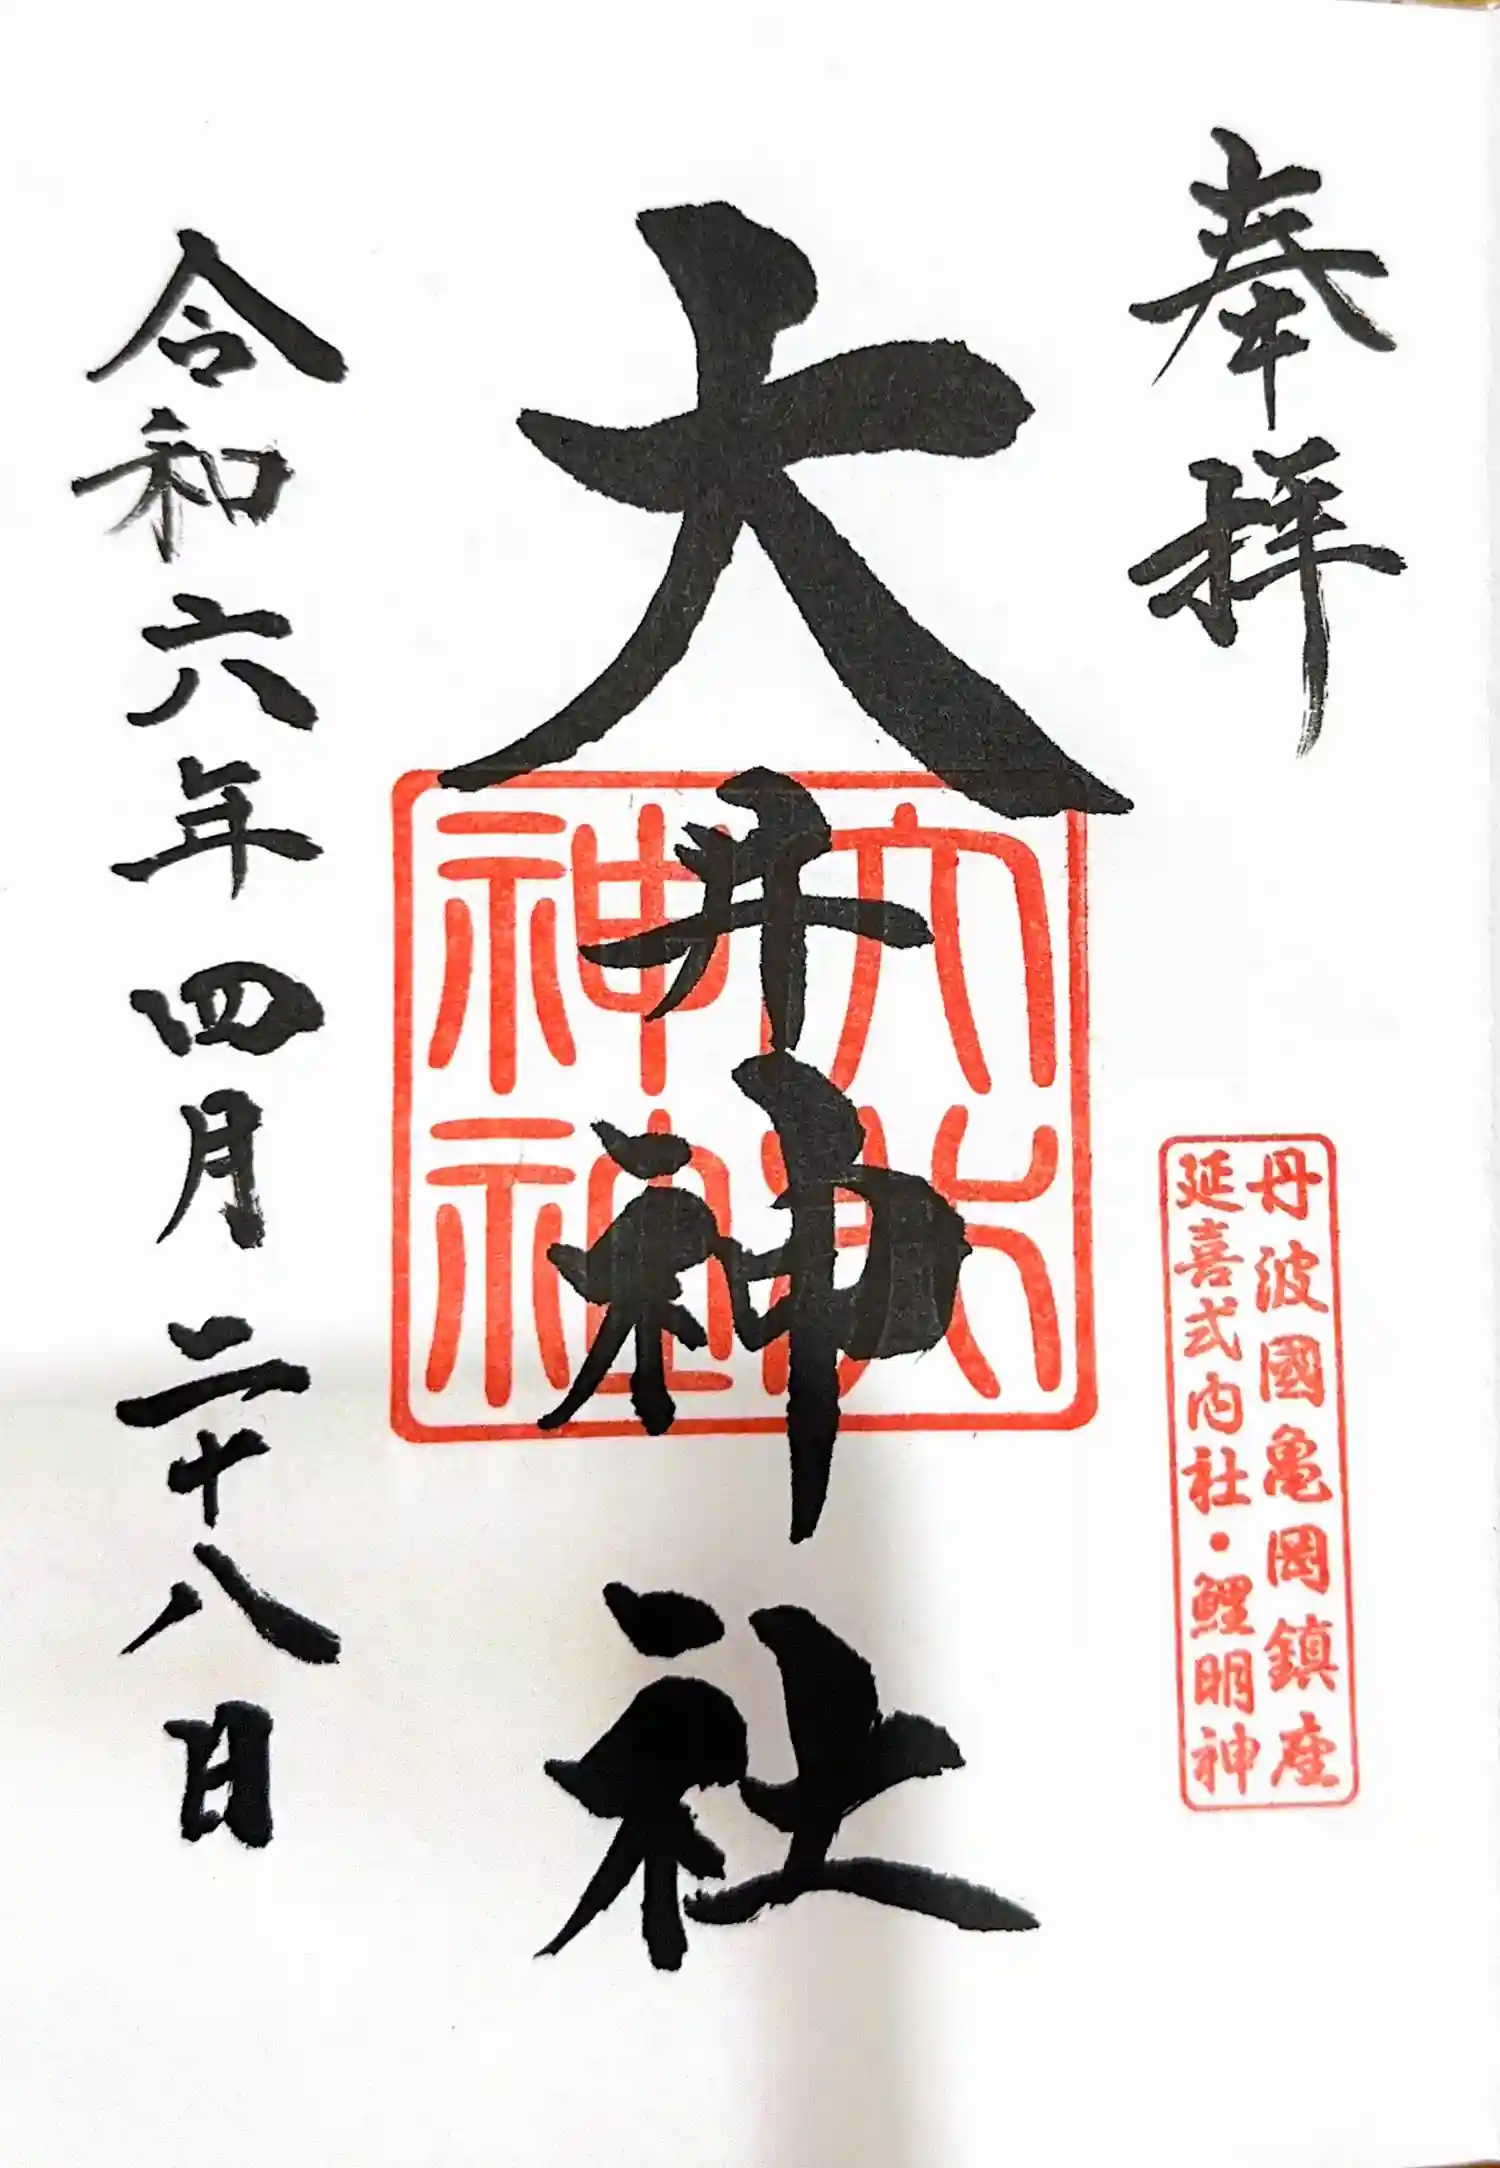 奉拝
丹波國亀岡鎮座
延喜式内社・鯉明神
大井神社
大井神社
令和六年四月二十八日